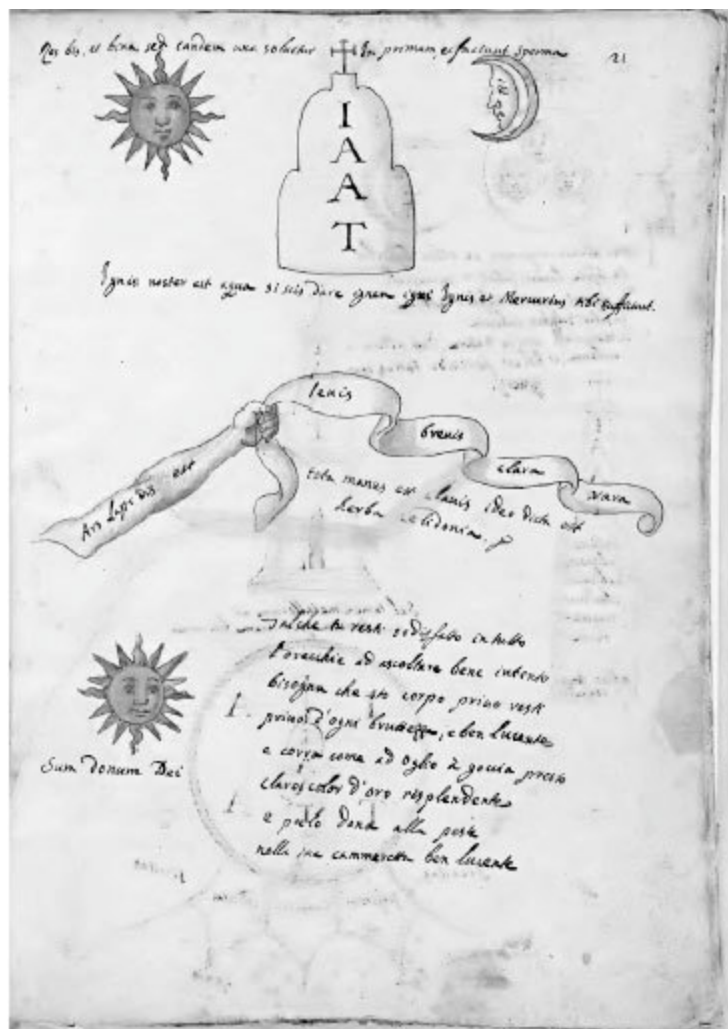 Res bis, et bina sed tandem una solvitur In primam, et faciunt sperma
21
I
A
A
T
Ignis noster est aqua si scis dare ignem igni Ignis et Mercurius tibi sufficiunt.
lenis
brevis
clara
rara
Ars Lapidis est
tota manus est clavis ideo dicta est
herba celidonia.
Talche tu resti sodisfatto in tutto
l'orecchie ad ascoltare bene intento
bisogna che sto corpo primo resti
privo d'ogni bruttezza, e ben lucente
e corra come ad oglio à goccia presto
claro color d'oro risplendente
e puolo dona alla
nella sua cammaretta ben lucente
Sum donum Dei